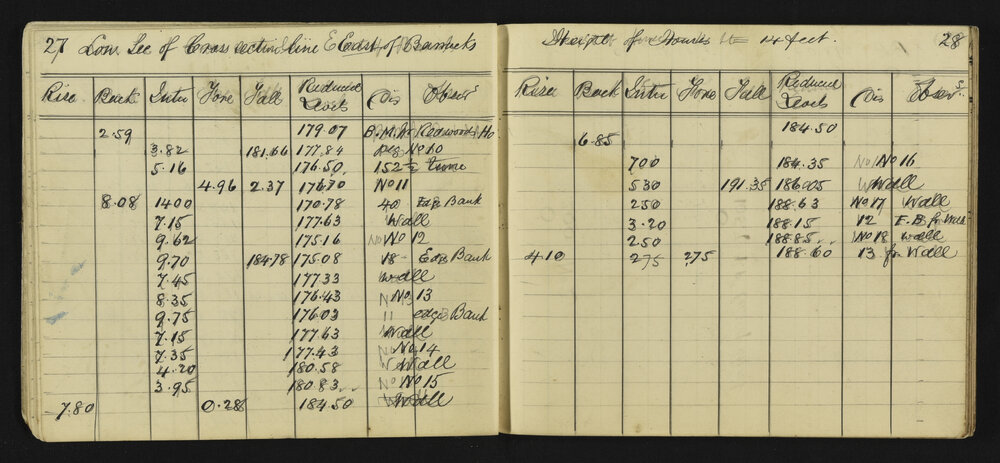 27 Low Sec of Cross section line E East of Barracks
Rise Back Inter Fore Fall Reduced Levels Dis Observ
2.59 179.07 B.M. Redwoods Ho
3.82 181.66 177.84 No 10
5.16 176.50 152
4.96 2.37 176.70 No 11
8.08 1400 170.78 40 Edg Bank
7.15 177.63 Wall
9.62 175.16 No 12
9.70 184.78 175.08 18 Edg Bank
7.45 177.33 Wall
8.35 176.43 No 13
9.75 176.03 11 edge Bank
7.15 177.63 Wall
7.35 177.43 No 14
4.20 180.58 Wall
3.95 180.83 No 15
7.80 0.28 184.50 Wall
Height of 14 feet. 28
Rise Back Inter Fore Fall Reduced Levels Dis Observs
6.85 184.50
700 184.35 No 16
530 191.35 186.05 Wall
250 188.63 No 17 Wall
3.20 188.15 12 F.B. fr
250 188.85 No 18 wall
410 275 275 188.60 13 fr Wall